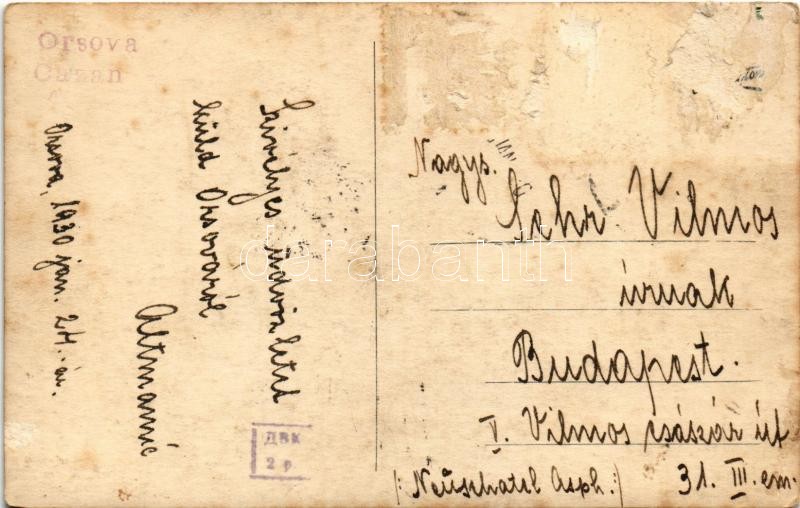 Orsova
Cazan
Szivélyes üdvözletet
küld Orsováról
Altmanné
Orsova, 1930 jan. 24.-én.
ДВК
2 p.
Nagys.
Lehr Vilmos
úrnak
Budapest.
V. Vilmos császár út
31. III. em.
(: Neüschatel Asph. :)
darabanth